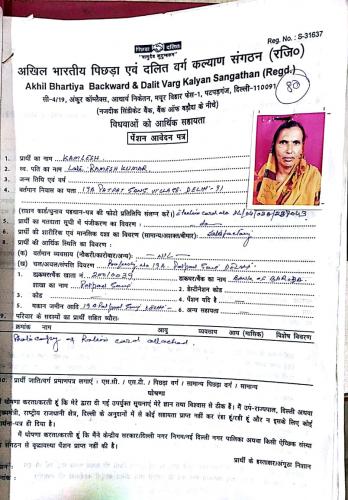 पिछड़ा दलित
Reg. No. : S-31637
अखिल भारतीय पिछड़ा एवं दलित वर्ग कल्याण संगठन (रजि०)
Akhil Bhartiya Backward & Dalit Varg Kalyan Sangathan (Regd.)
सी-4/19, अंकुर कॉम्प्लैक्स, आचार्य निकेतन, मयूर विहार फेस-1, पटपड़गंज, दिल्ली-110091
(नजदीक सिंडीकेट बैंक, बैंक ऑफ बड़ौदा के नीचे)
विधवाओं को आर्थिक सहायता
पेंशन आवेदन पत्र
1. प्रार्थी का नाम KAMLESH
2. स्व. पति का नाम Late RAMESH KUMAR
3. जन्म तिथि एवं वर्ष
4. वर्तमान निवास का पता 19A PATPAT GUNJ VILLAGE DELHI-91
(राशन कार्ड/चुनाव पहचान-पत्र की फोटो प्रतिलिपि संलग्न करें।)
5. प्रार्थी का मतदाता सूची में पंजीकरण का विवरण : do
6. प्रार्थी की शारीरिक एवं मानसिक दशा का विवरण (सामान्य/अशक्त/बीमार): Satisfactory
8. प्रार्थी की आर्थिक स्थिति का विवरण :
(क) वर्तमान व्यवसाय (नौकरी/कारोबार/अन्य): NIL
(ख) चल/अचल/संपत्ति विवरण
1. डाकघर/बैंक खाता नं. 2. डाकघर/बैंक का नाम BANK OF BARODA
शाखा का नाम Patpar Gunj
3. कोड 2. डेस्टीनेशन कोड
4. पेंशन यदि है
5. मकान जमीन आदि 19A Patpar Gunj Delhi 6. अन्य सहायता
9. परिवार के सदस्यों का प्रार्थी सहित ब्यौरा:
क्रमांक नाम आयु व्यवसाय आय (मासिक) विशेष विवरण
Photo copy of Ration card attached.
10. प्रार्थी जाति/वर्ग प्रमाणपत्र लगाएं : एस.सी. / एस.टी. / पिछड़ा वर्ग / सामान्य पिछड़ा वर्ग / सामान्य
घोषणा
घोषणा करता/करती हूं कि मेरे द्वारा दी गई उपर्युक्त सूचनाएं मेरे ज्ञान तथा विश्वास से ठीक हैं। मैं उप-राज्यपाल, दिल्ली अथवा
प्रधानमंत्री, राष्ट्रीय राजधानी क्षेत्र, दिल्ली के अनुदानों में से कोई सहायता प्राप्त नहीं कर रहा हूं/रही हूं और न इसके लिए कोई
प्रार्थना-पत्र ही दिया है।
मैं घोषणा करता/करती हूं कि मैंने केन्द्रीय सरकार/दिल्ली नगर निगम/नई दिल्ली नगर पालिका अथवा किसी ऐच्छिक संस्था
संगठन से वृद्धावस्था पेंशन प्राप्त नहीं की है।
प्रार्थी के हस्ताक्षर/अंगूठा निशान